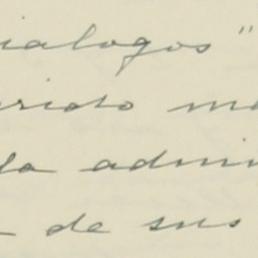 ialogos"
erido m
la admi
de sus